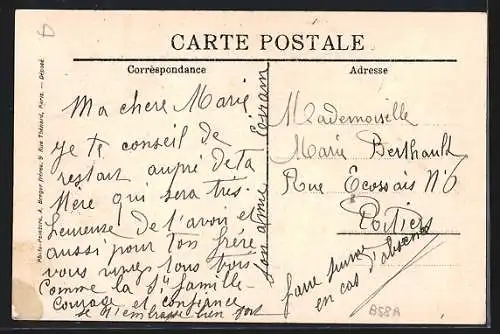 CARTE POSTALE
Correspondance
Adresse
Ma chere Marie
je te conseil de
restait aupré de ta
Mère qui sera très-
heureuse de l'avoir et
aussi pour ton frère
vous vivrez tous trois
Comme la Ste famille-
Courage et confiance
Je t'embrasse bien fort
ton amie
Mademoiselle
Marie Berthault
Rue Ecossais N°6
Poitiers
faire suivre
en cas d'absence
B58A
Photo-Peinture, A. Berger frères, 9 Rue Thénard, Paris. — Déposé.